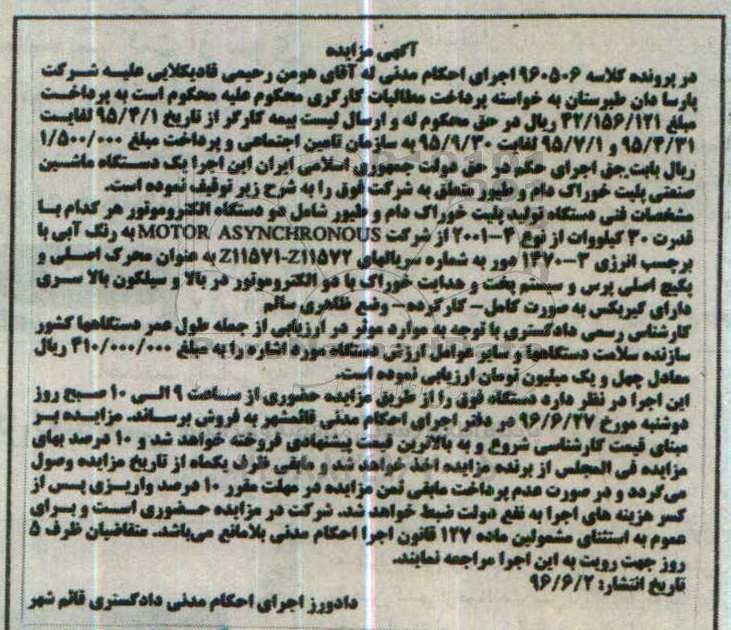 آگهی مزایده
در پرونده کلاسه ۹۶۰۵۰۶ اجرای احکام مدنی له آقای هومن رحیمی قادیکلایی علیه شرکت
پارسا دان طبرستان به خواسته پرداخت مطالبات کارگری محکوم علیه محکوم است به پرداخت
مبلغ ۴۲/۱۵۶/۱۲۱ ریال در حق محکوم له و ارسال لیست بیمه کارگر از تاریخ ۹۵/۴/۱ لغایت
۹۵/۴/۳۱ و ۹۵/۷/۱ لغایت ۹۵/۹/۳۰ به سازمان تامین اجتماعی و پرداخت مبلغ ۱/۵۰۰/۰۰۰
ریال بابت حق اجرای حکم در حق دولت جمهوری اسلامی ایران این اجرا یک دستگاه ماشین
صنعتی پلیت خوراک دام و طیور متعلق به شرکت فوق را به شرح زیر توقیف نموده است.
مشخصات فنی دستگاه تولید پلیت خوراک دام و طیور شامل دو دستگاه الکتروموتور هر کدام با
قدرت ۳۰ کیلووات از نوع ۴-۲۰۰۱ از شرکت MOTOR ASYNCHRONOUS به رنگ آبی با
برچسب انرژی ۳-۱۴۷۰ دور به شماره سریالهای Z11571-Z11572 به عنوان محرک اصلی و
پکیج اصلی پرس و سیستم پخت و هدایت خوراک با دو الکتروموتور در بالا و سیلکون بالا سری
دارای گیربکس به صورت کامل- کارکرده- وضع ظاهری سالم
کارشناس رسمی دادگستری با توجه به موارد موثر در ارزیابی از جمله طول عمر دستگاهها کشور
سازنده سلامت دستگاهها و سایر عوامل ارزش دستگاه مورد اشاره را به مبلغ ۴۱۰/۰۰۰/۰۰۰ ریال
معادل چهل و یک میلیون تومان ارزیابی نموده است.
این اجرا در نظر دارد دستگاه فوق را از طریق مزایده حضوری از ساعت ۹ الی ۱۰ صبح روز
دوشنبه مورخ ۹۶/۶/۲۷ در دفتر اجرای احکام مدنی قائمشهر به فروش برساند. مزایده بر
مبنای قیمت کارشناسی شروع و به بالاترین قیمت پیشنهادی فروخته خواهد شد و ۱۰ درصد بهای
مزایده فی المجلس از برنده مزایده اخذ خواهد شد و مابقی ظرف یکماه از تاریخ مزایده وصول
می‌گردد و در صورت عدم پرداخت مابقی ثمن مزایده در مهلت مقرر ۱۰ درصد واریزی پس از
کسر هزینه های اجرا به نفع دولت ضبط خواهد شد. شرکت در مزایده حضوری است و برای
عموم به استثنای مشمولین ماده ۱۲۷ قانون اجرا احکام مدنی بلامانع می‌باشد. متقاضیان ظرف ۵
روز جهت رویت به این اجرا مراجعه نمایند.
تاریخ انتشار: ۹۶/۶/۲
دادورز اجرای احکام مدنی دادگستری قائم شهر